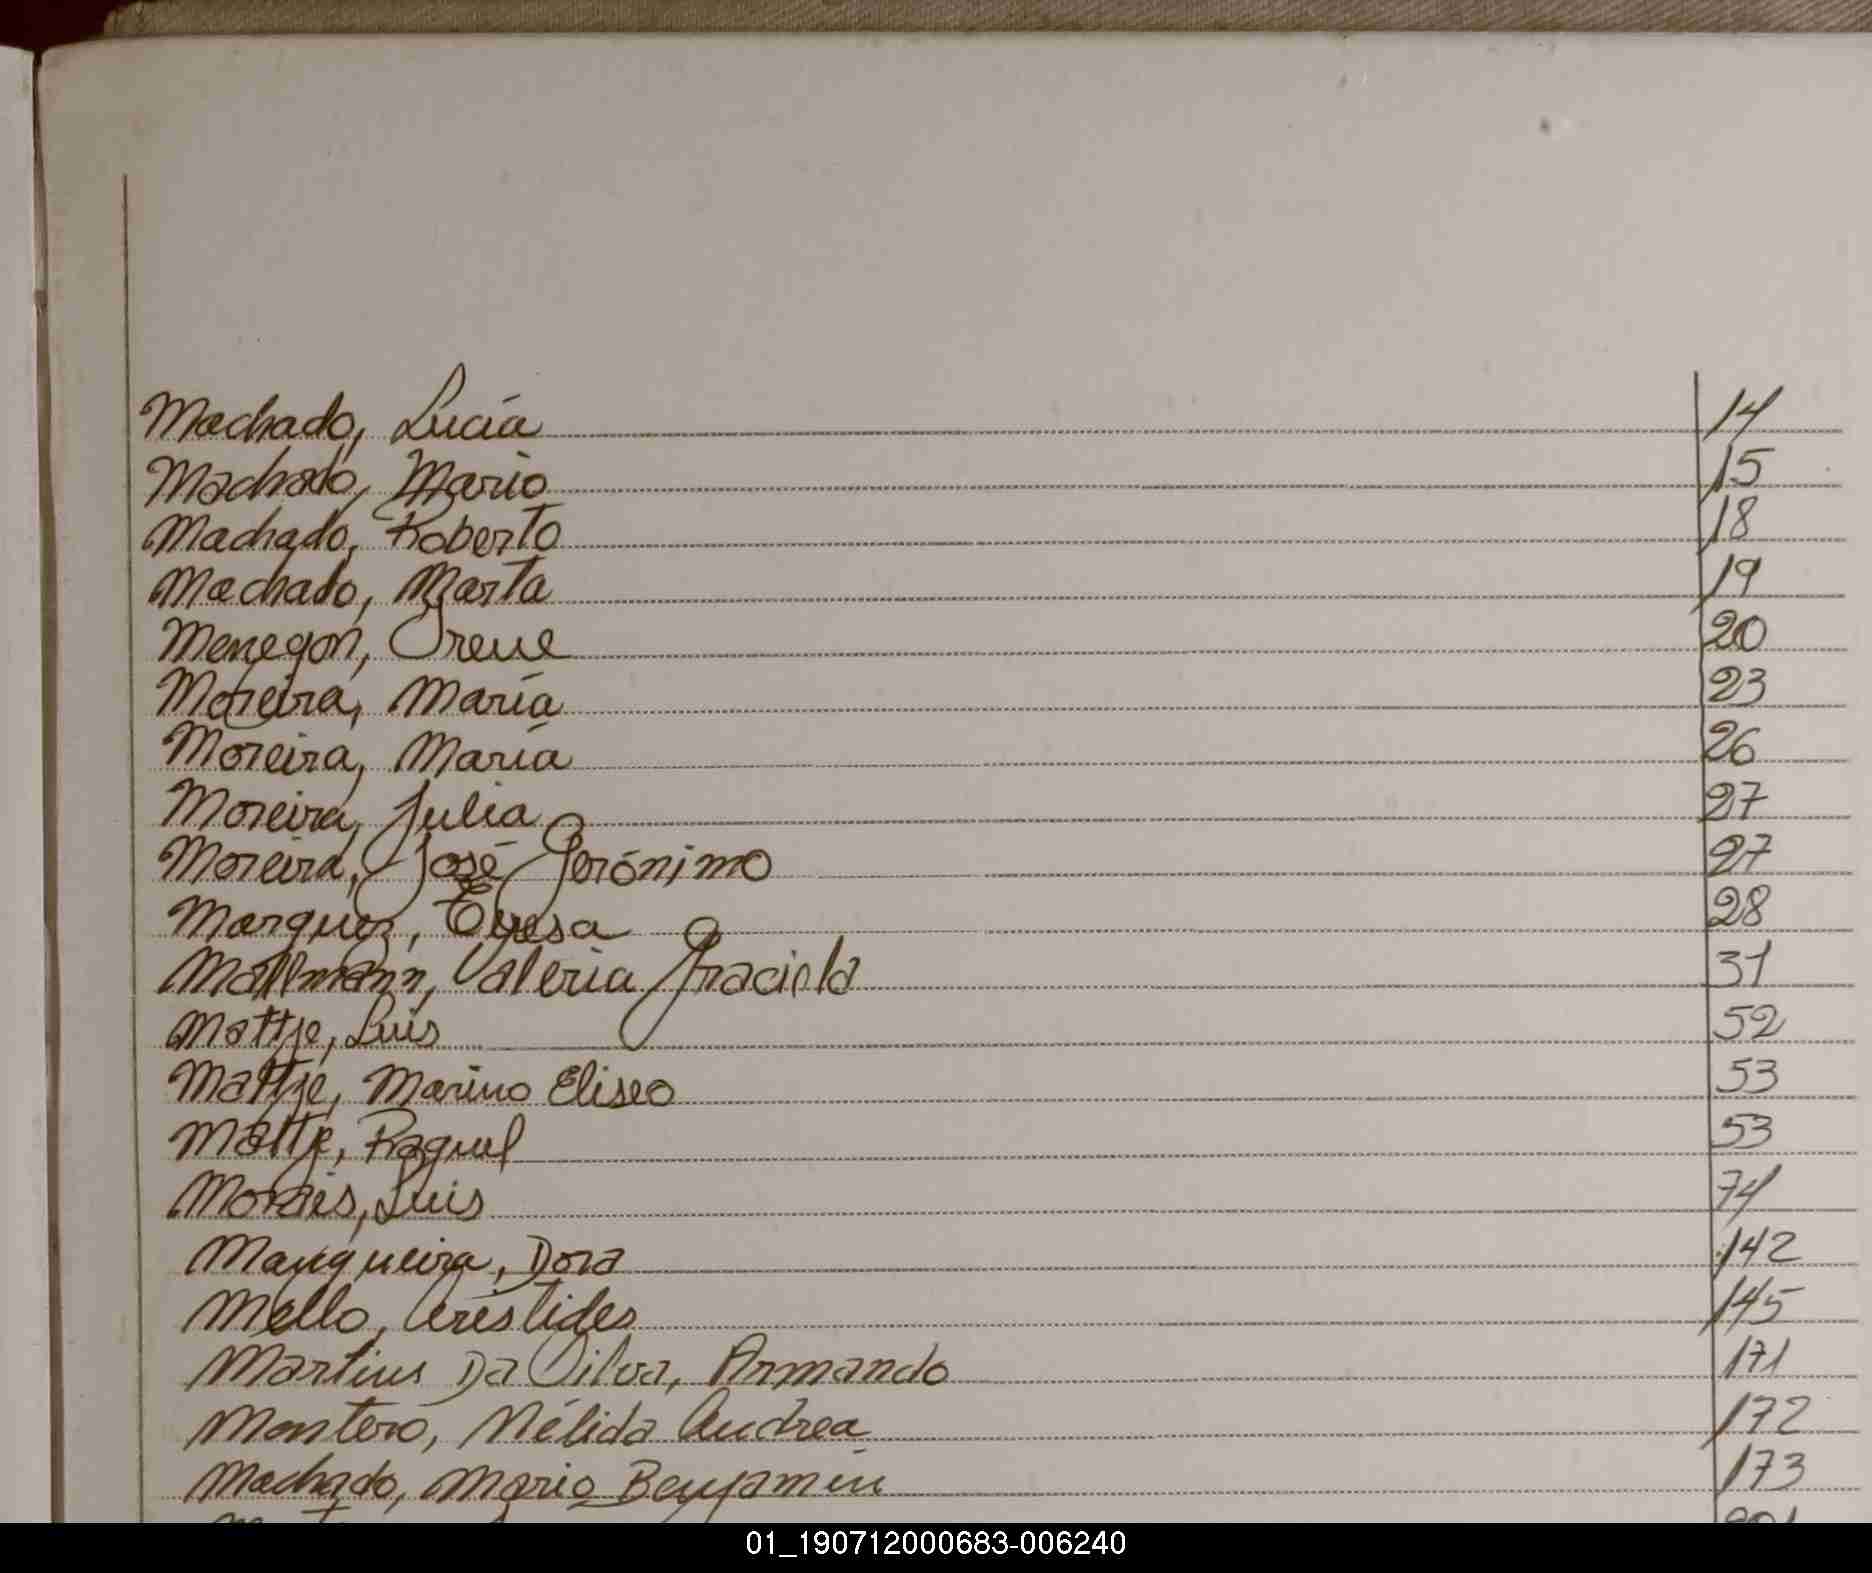 Machado, Lucía 14
Machado, Mario 15
Machado, Roberto 18
Machado, Marta 19
Menegon, Irene 20
Moreira, María 23
Moreira, María 26
Moreira, Julia 27
Moreira, José Gerónimo 27
Marquez, Teresa 28
Mallmann, Valeria Graciela 31
Mattje, Luis 52
Mattje, Marino Eliseo 53
Mattje, Raquel 53
Moraes, Luis 74
Mangueira, Dora 142
Mello, Arístides 145
Martins Da Silva, Armando 171
Montero, Nélida Andrea 172
Machado, Mario Benjamín 173
01_190712000683-006240